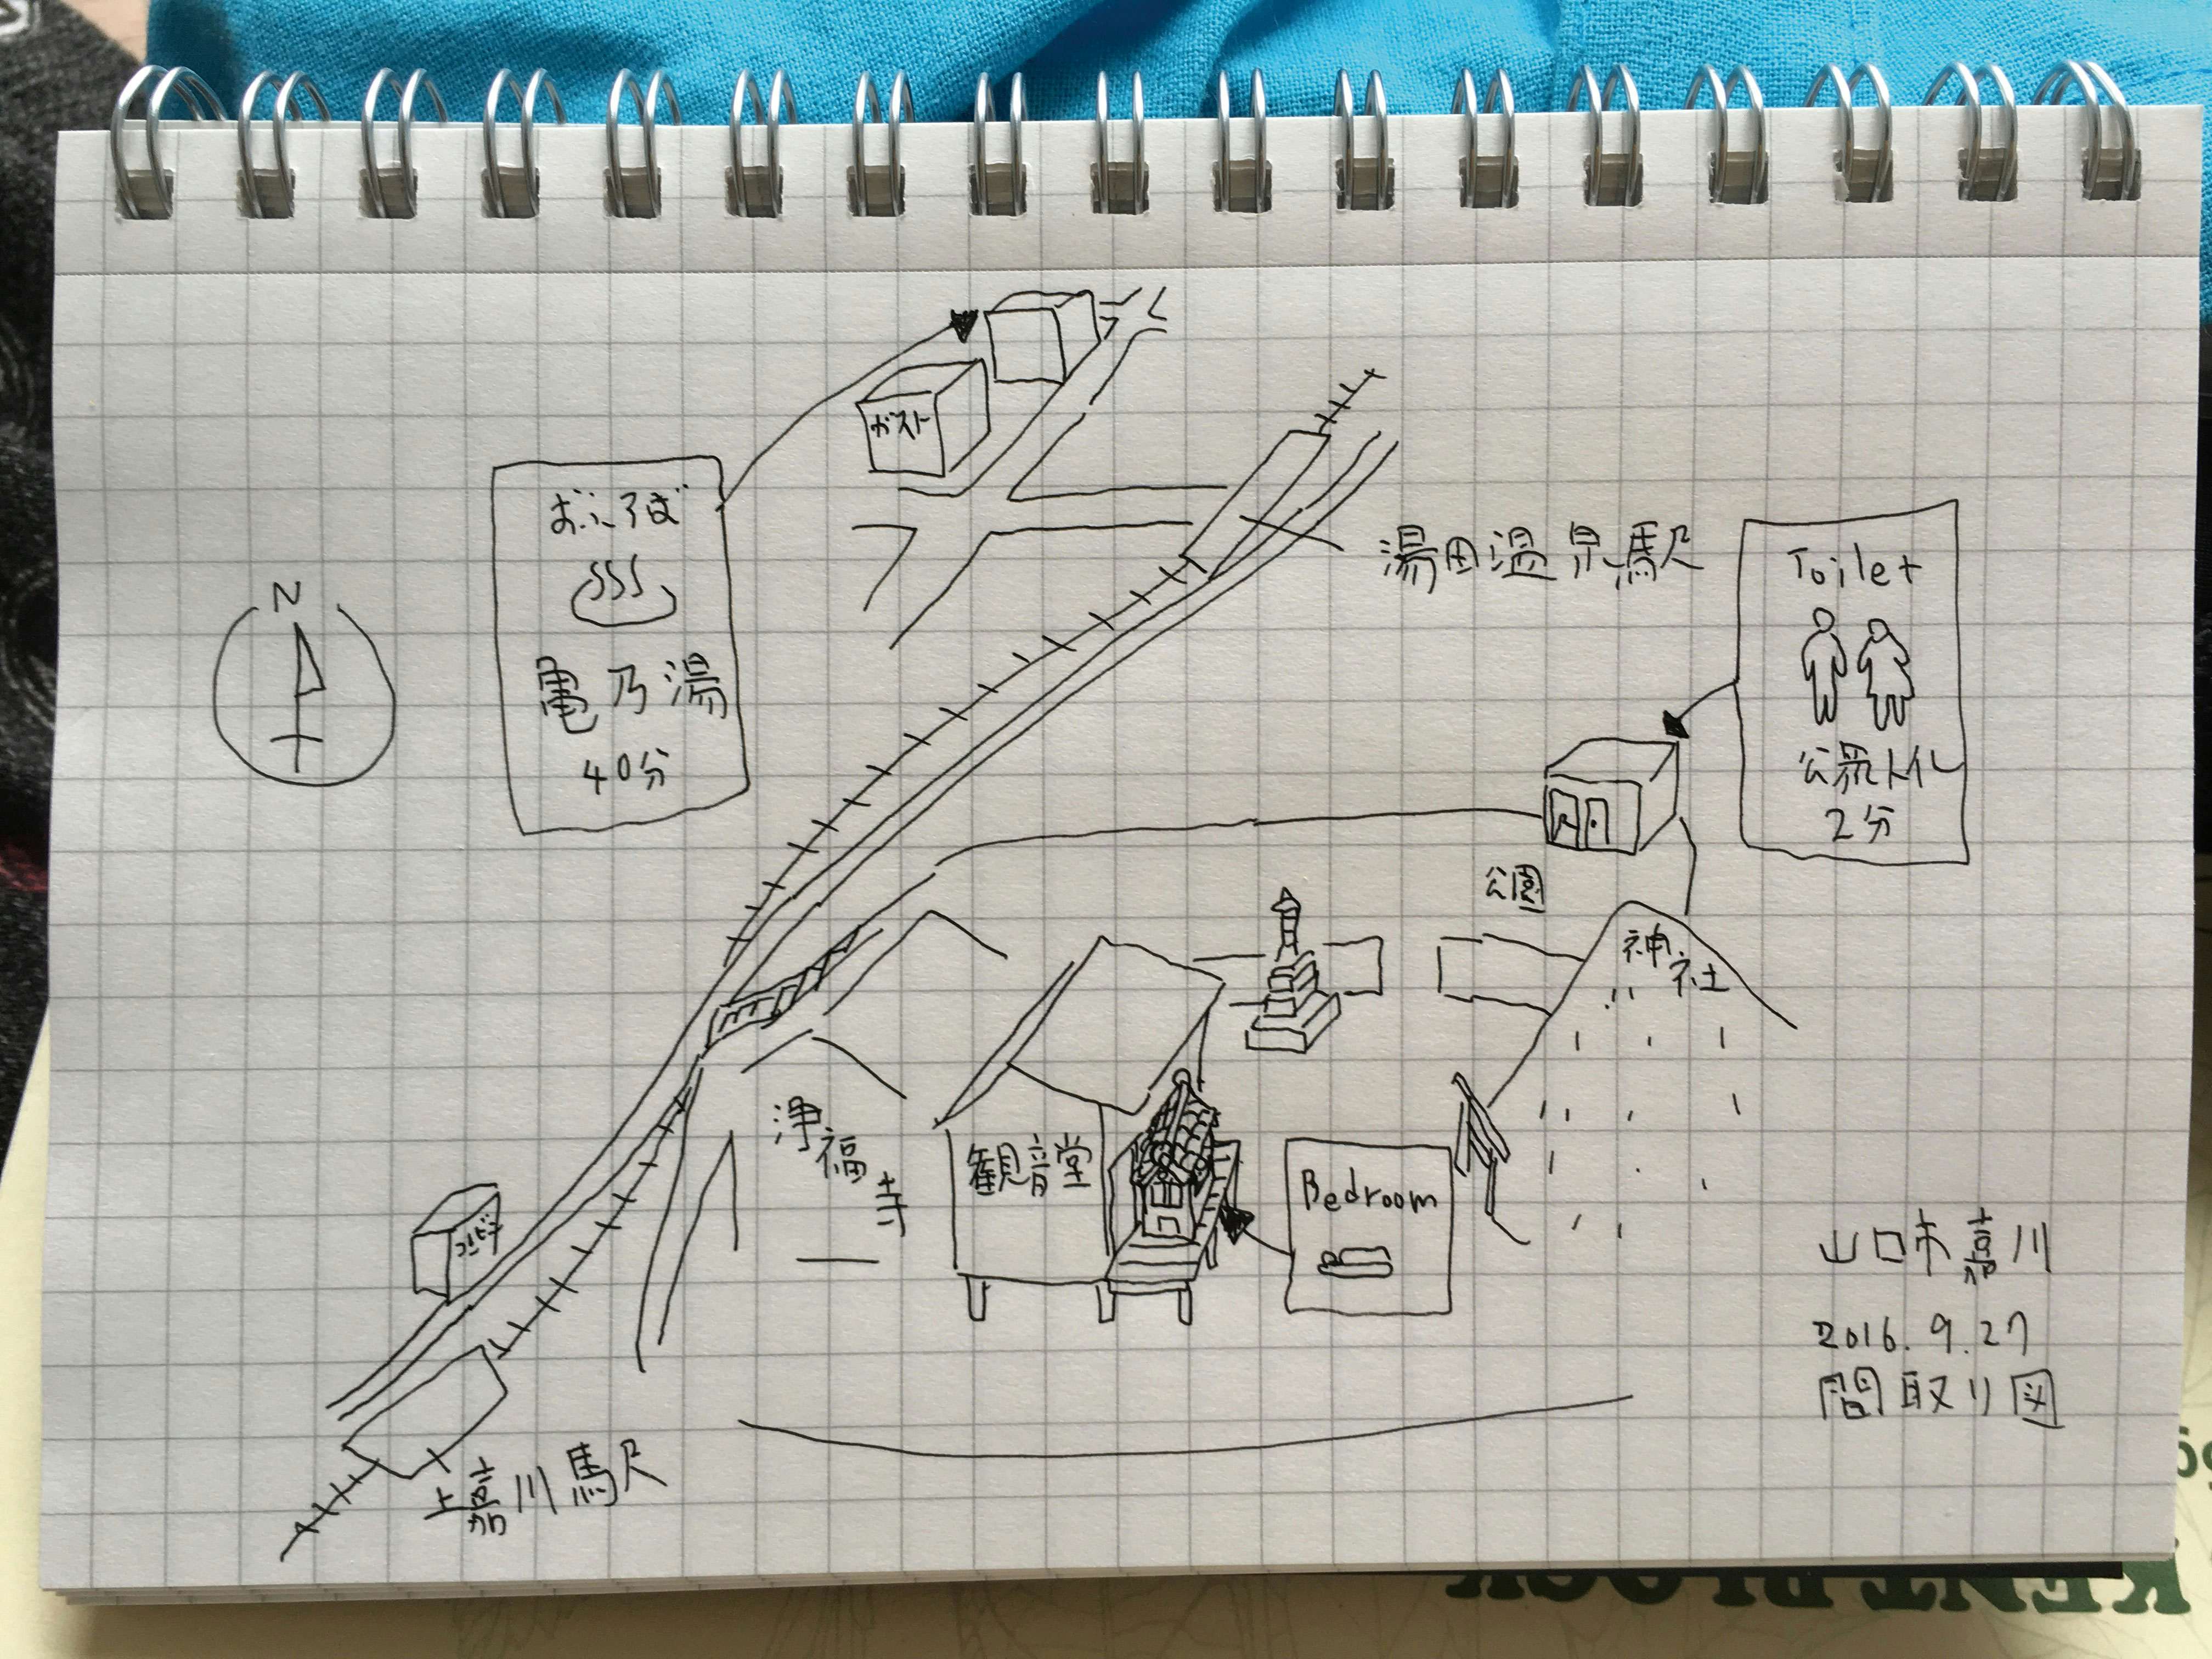 ガスト
おふろば
亀乃湯
40分
N
湯田温泉駅
Toilet
公衆トイレ
2分
公園
神社
浄福寺
観音堂
Bedroom
コンビニ
上嘉川駅
山口市嘉川
2016.9.27
間取り図
KENT BLOCK